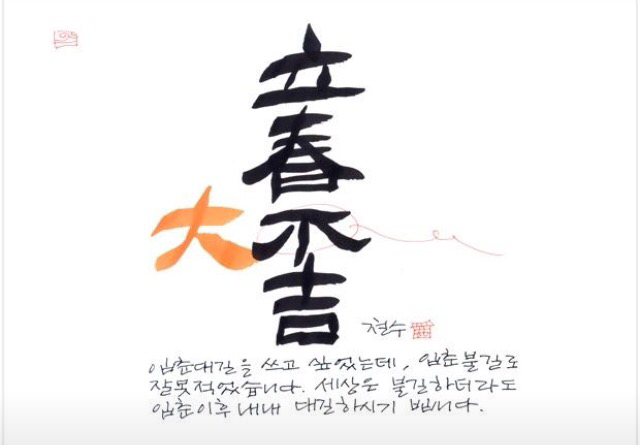 立
春
大 不
吉
철수
입춘대길을 쓰고 싶었는데, 입춘불길로
잘못적었습니다. 세상은 불길하더라도
입춘이후 내내 대길하시기 빕니다.